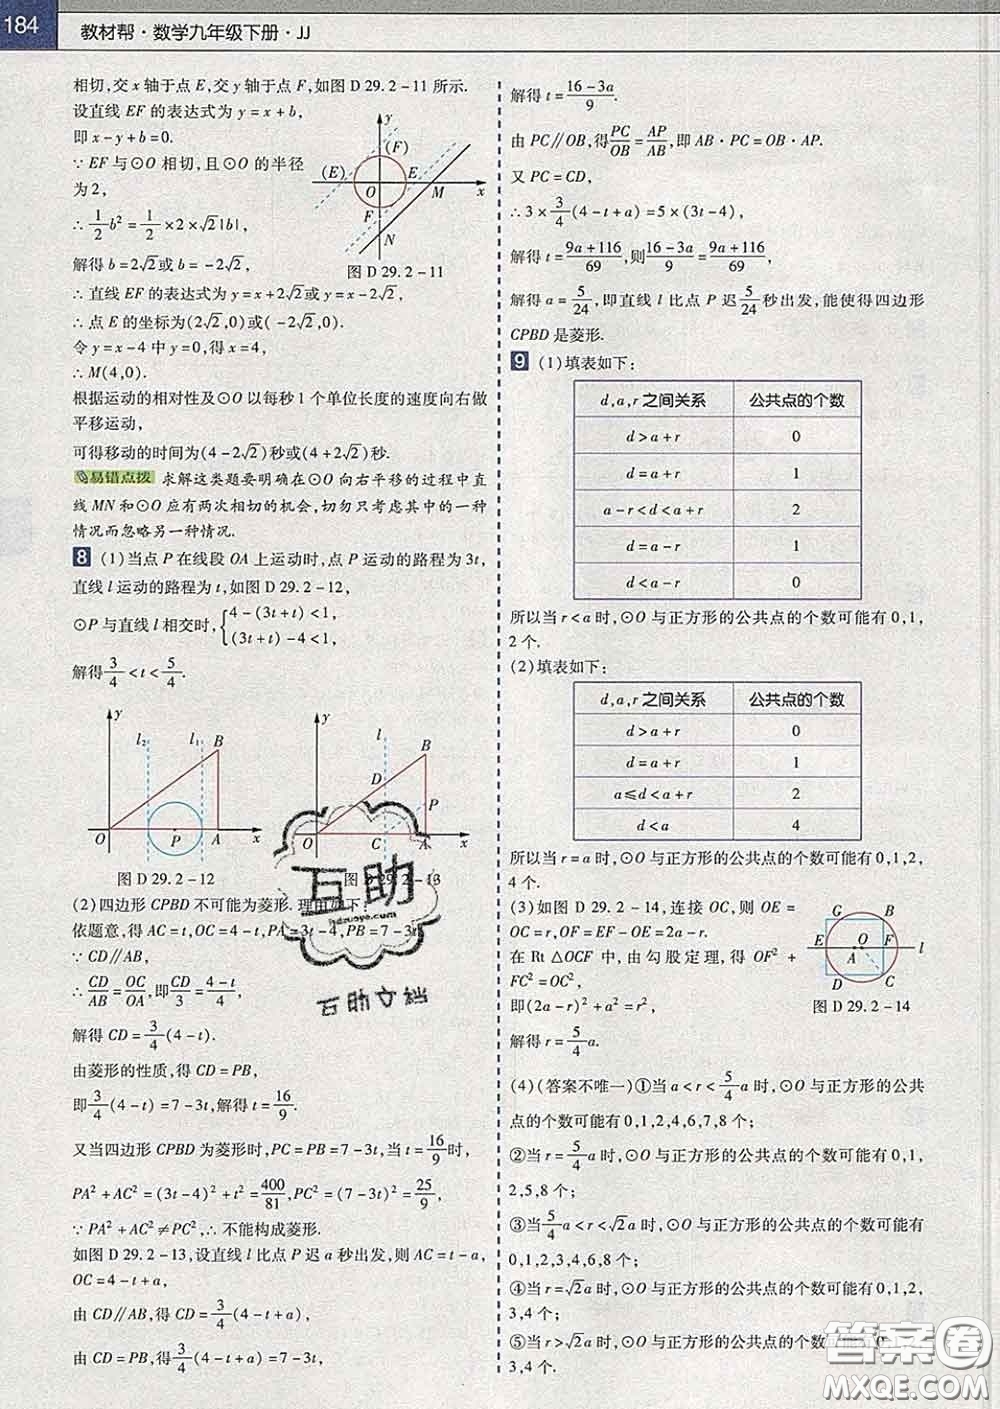 184
教材帮·数学九年级下册·JJ
相切,交 x 轴于点 E,交 y 轴于点 F,如图 D 29.2-11 所示.
设直线 EF 的表达式为 y=x+b,
即 x-y+b=0.
∵ EF 与⊙O 相切,且⊙O 的半径
为 2,
∴ 1/2 b²=1/2×2×√2|b|,
解得 b=2√2或 b=-2√2,
∴ 直线 EF 的表达式为 y=x+2√2或 y=x-2√2.
∴ 点 E 的坐标为(2√2,0)或(-2√2,0).
令 y=x-4 中 y=0,得 x=4,
∴ M(4,0).
根据运动的相对性及⊙O 以每秒 1 个单位长度的速度向右做
平移运动,
可得移动的时间为(4-2√2)秒或(4+2√2)秒.
易错点拨 求解这类题要明确在⊙O 向右平移的过程中直
线 MN 和⊙O 应有两次相切的机会,切勿只考虑其中的一种
情况而忽略另一种情况.
y
(F)
(E)
E
O
M
x
F
N
图 D 29.2-11
8 (1)当点 P 在线段 OA 上运动时,点 P 运动的路程为 3t,
直线 l 运动的路程为 t,如图 D 29.2-12,
⊙P 与直线 l 相交时,{4-(3t+t)<1,
(3t+t)-4<1,
解得 3/4<t<5/4.
y
l₂
l₁
B
O
P
A
x
图 D 29.2-12
y
l
B
D
P
O
C
A
x
图 D 29.2-13
(2)四边形 CPBD 不可能为菱形. 理由如下:
依题意,得 AC=t,OC=4-t,PA=3t-4,PB=7-3t.
∵ CD∥AB,
∴ CD/AB=OC/OA,即CD/3=(4-t)/4,
解得 CD=3/4(4-t).
由菱形的性质,得 CD=PB,
即3/4(4-t)=7-3t,解得 t=16/9.
又当四边形 CPBD 为菱形时,PC=PB=7-3t,当 t=16/9时,
PA²+AC²=(3t-4)²+t²=400/81,PC²=(7-3t)²=25/9,
∵ PA²+AC²≠PC²,∴ 不能构成菱形.
如图 D 29.2-13,设直线 l 比点 P 迟 a 秒出发,则 AC=t-a,
OC=4-t+a,
由 CD∥AB,得 CD=3/4(4-t+a),
由 CD=PB,得3/4(4-t+a)=7-3t,
解得 t=(16-3a)/9.
由 PC∥OB,得PC/OB=AP/AB,即 AB·PC=OB·AP.
又 PC=CD,
∴ 3×3/4(4-t+a)=5×(3t-4),
解得 t=(9a+116)/69,则(16-3a)/9=(9a+116)/69,
解得 a=5/24,即直线 l 比点 P 迟5/24秒出发,能使得四边形
CPBD 是菱形.
9 (1)填表如下:
d,a,r 之间关系 公共点的个数
d>a+r 0
d=a+r 1
a-r<d<a+r 2
d=a-r 1
d<a-r 0
所以当 r<a 时,⊙O 与正方形的公共点的个数可能有 0,1,
2 个.
(2)填表如下:
d,a,r 之间关系 公共点的个数
d>a+r 0
d=a+r 1
a≤d<a+r 2
d<a 4
所以当 r=a 时,⊙O 与正方形的公共点的个数可能有 0,1,2,
4 个.
(3)如图 D 29.2-14,连接 OC,则 OE=
OC=r,OF=EF-OE=2a-r.
在 Rt△OCF 中,由勾股定理,得 OF²+
FC²=OC²,
即(2a-r)²+a²=r²,
解得 r=5/4 a.
G
B
E
O
F
l
A
D
C
图 D 29.2-14
(4)(答案不唯一)①当 a<r<5/4 a 时,⊙O 与正方形的公共
点的个数可能有 0,1,2,4,6,7,8 个;
②当 r=5/4 a 时,⊙O 与正方形的公共点的个数可能有 0,1,
2,5,8 个;
③当5/4 a<r<√2a 时,⊙O 与正方形的公共点的个数可能有
0,1,2,3,4,6,8 个;
④当 r=√2a 时,⊙O 与正方形的公共点的个数可能有 0,1,2,
3,4 个;
⑤当 r>√2a 时,⊙O 与正方形的公共点的个数可能有 0,1,2,
3,4 个.
互助
hdzuoye.com
互助文档
答案圈
MXQE.COM